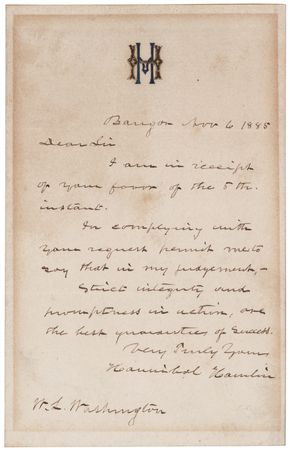 HH
Bangor Nov 6 1885
Dear Sir
I am in receipt
of your favor of the 5 th.
instant.
In complying with
your request permit me to
say that in my judgement, -
Strict integrity and
promptness in action, are
the best guaranties of success.
Very Truly Yours
Hannibal Hamlin
W. L. Washington